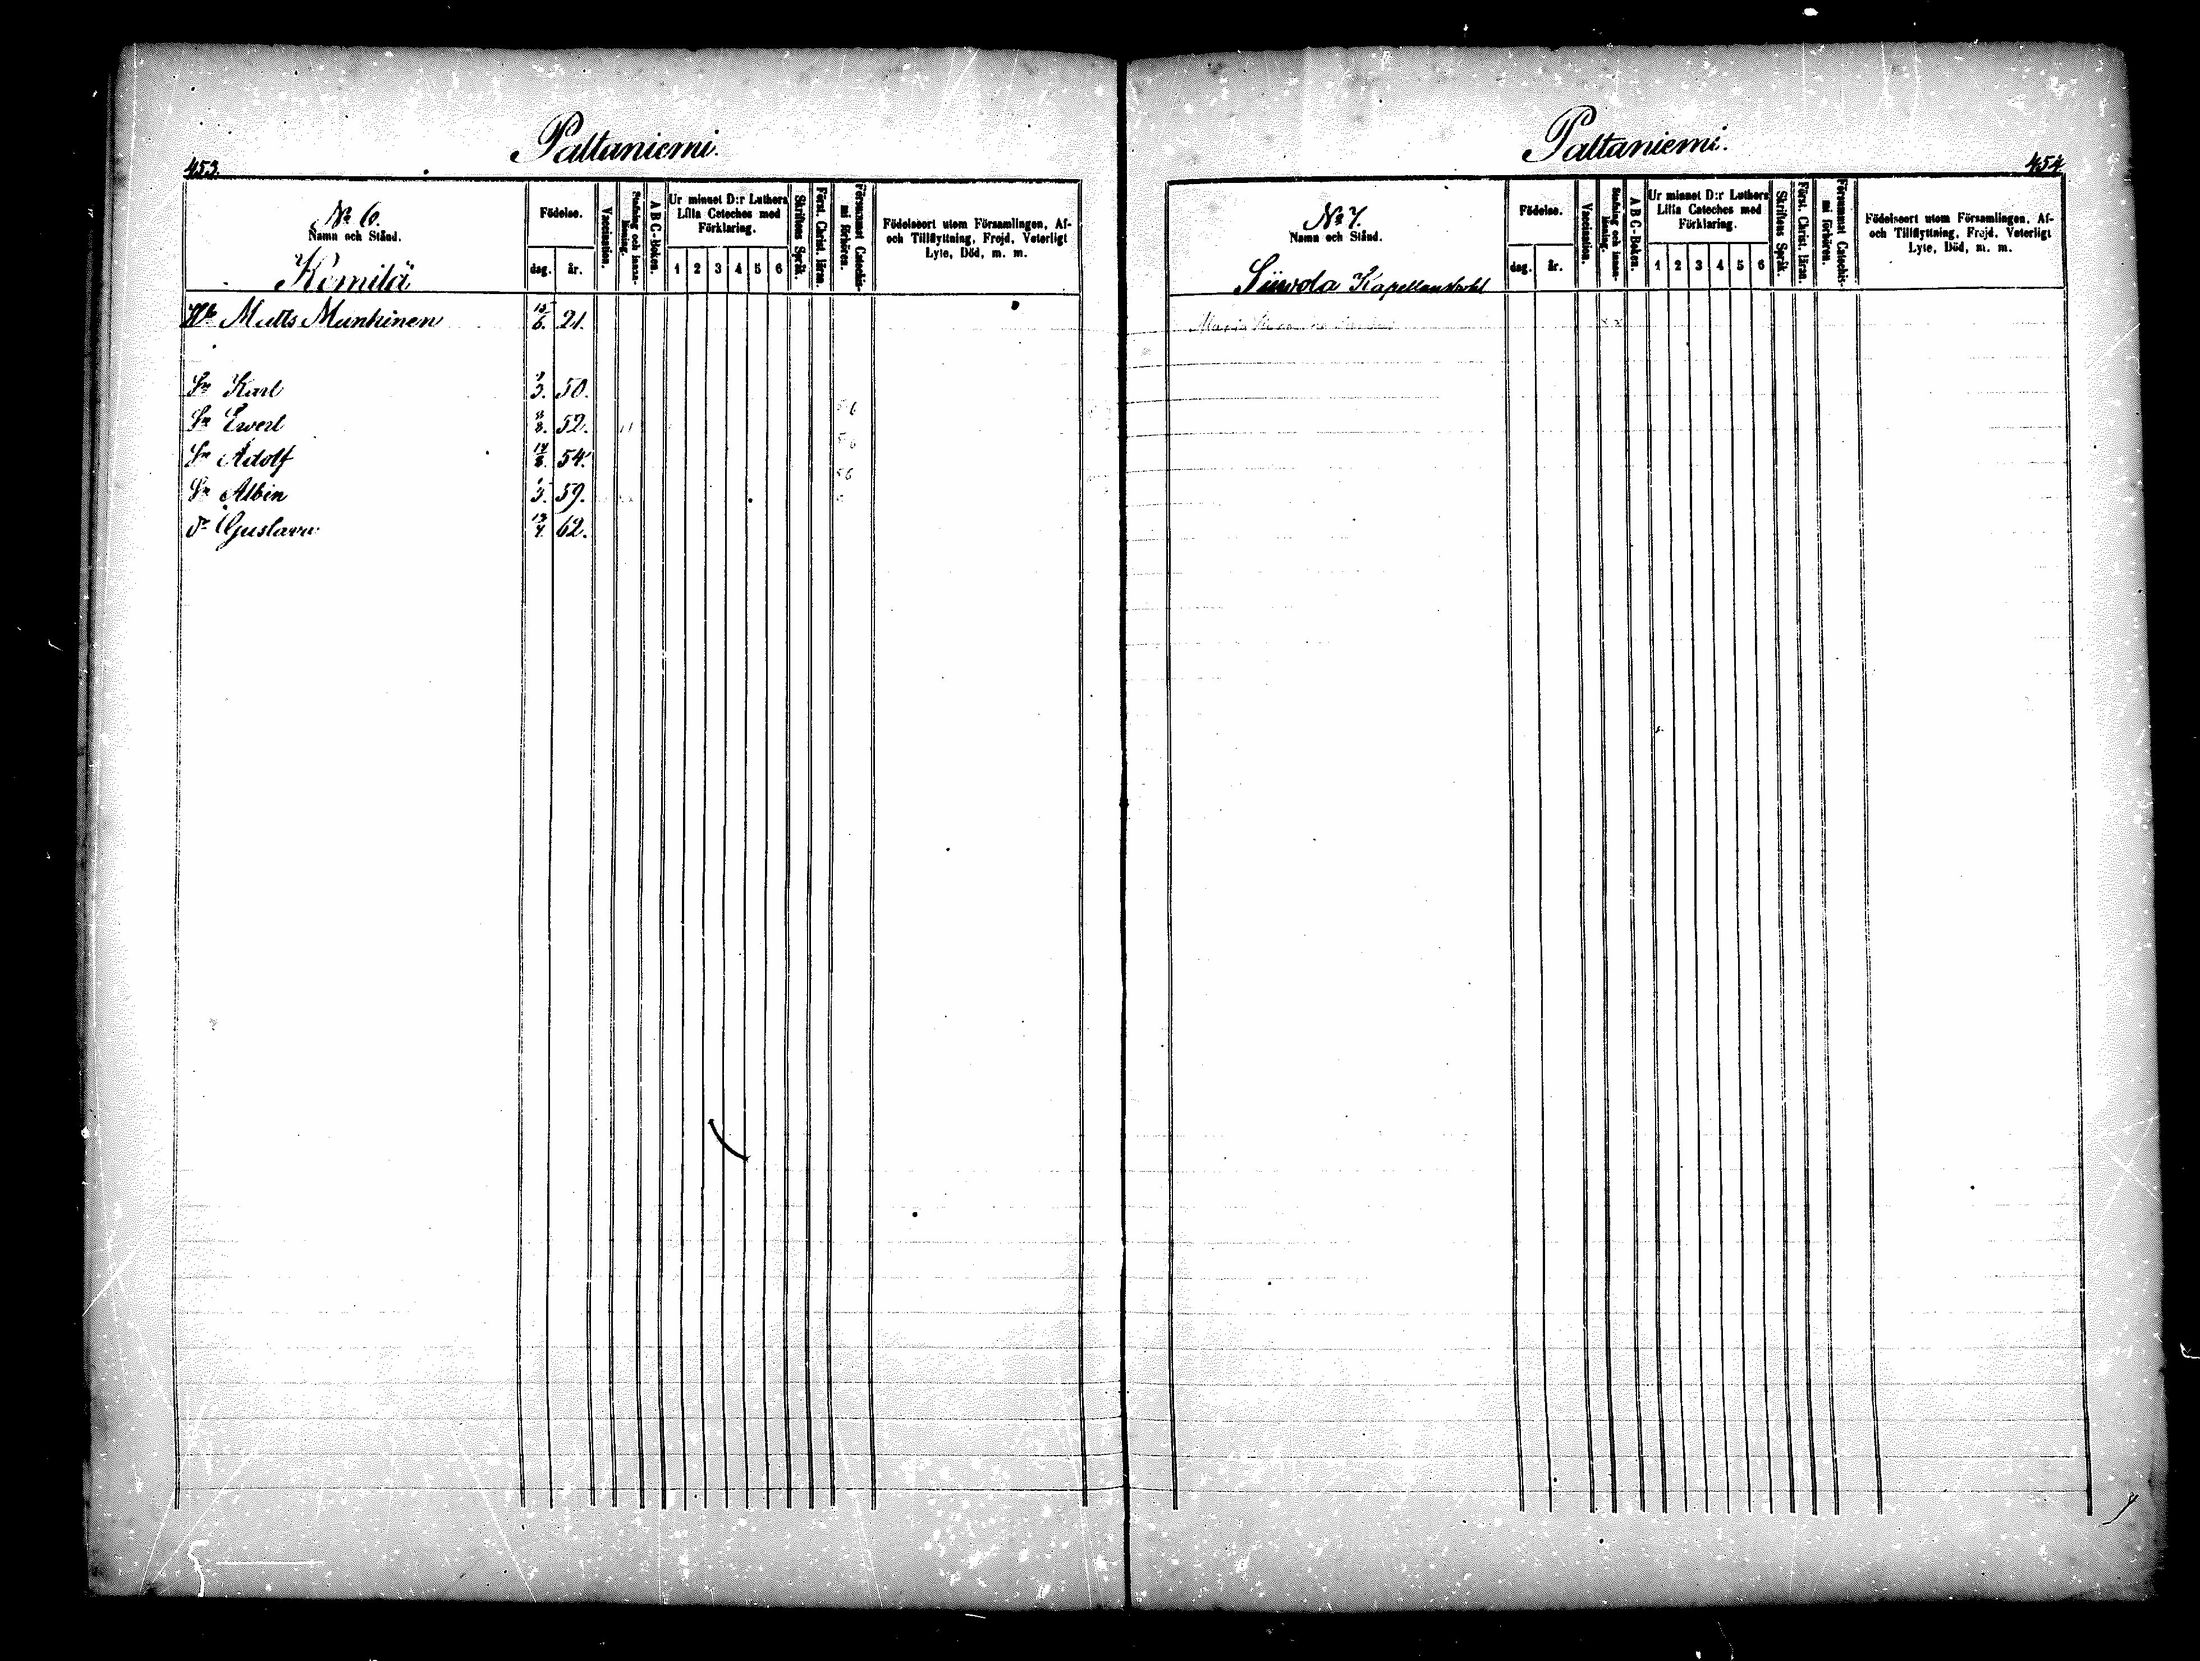 Paltaniemi.
453
No 6.
Namn och Stånd.
Kemilä
Födelse.
dag. år.
Vaccination.
Stafning och innan-läsning.
A B C-Boken.
Ur minnet D:r Luthers Lilla Cateches med Förklaring.
1 2 3 4 5 6
Skriftens Språk.
Först. Christ. läran.
Försummat Catechis-mi förhören.
Födelseort utom Församlingen, Af-
och Tillflyttning, Frejd, Veterligt
Lyte, Död, m. m.
Matts Munkinen 15/6. 21.
Sn Karl 50.
Sn Evert 52.
Sn Adolf 54.
Sn Albin 59.
Dr Gustava 62.
Paltaniemi.
454
No 7.
Namn och Stånd.
Siivola Kapellansbohl
Födelse.
dag. år.
Vaccination.
Stafning och innan-läsning.
A B C-Boken.
Ur minnet D:r Luthers
Lilla Cateches med
Förklaring.
1 2 3 4 5 6
Skriftens Språk.
Först. Christ. läran.
Försummat Catechis-mi förhören.
Födelseort utom Församlingen, Af-
och Tillflyttning, Frejd, Veterligt
Lyte, Död, m. m.
Maria